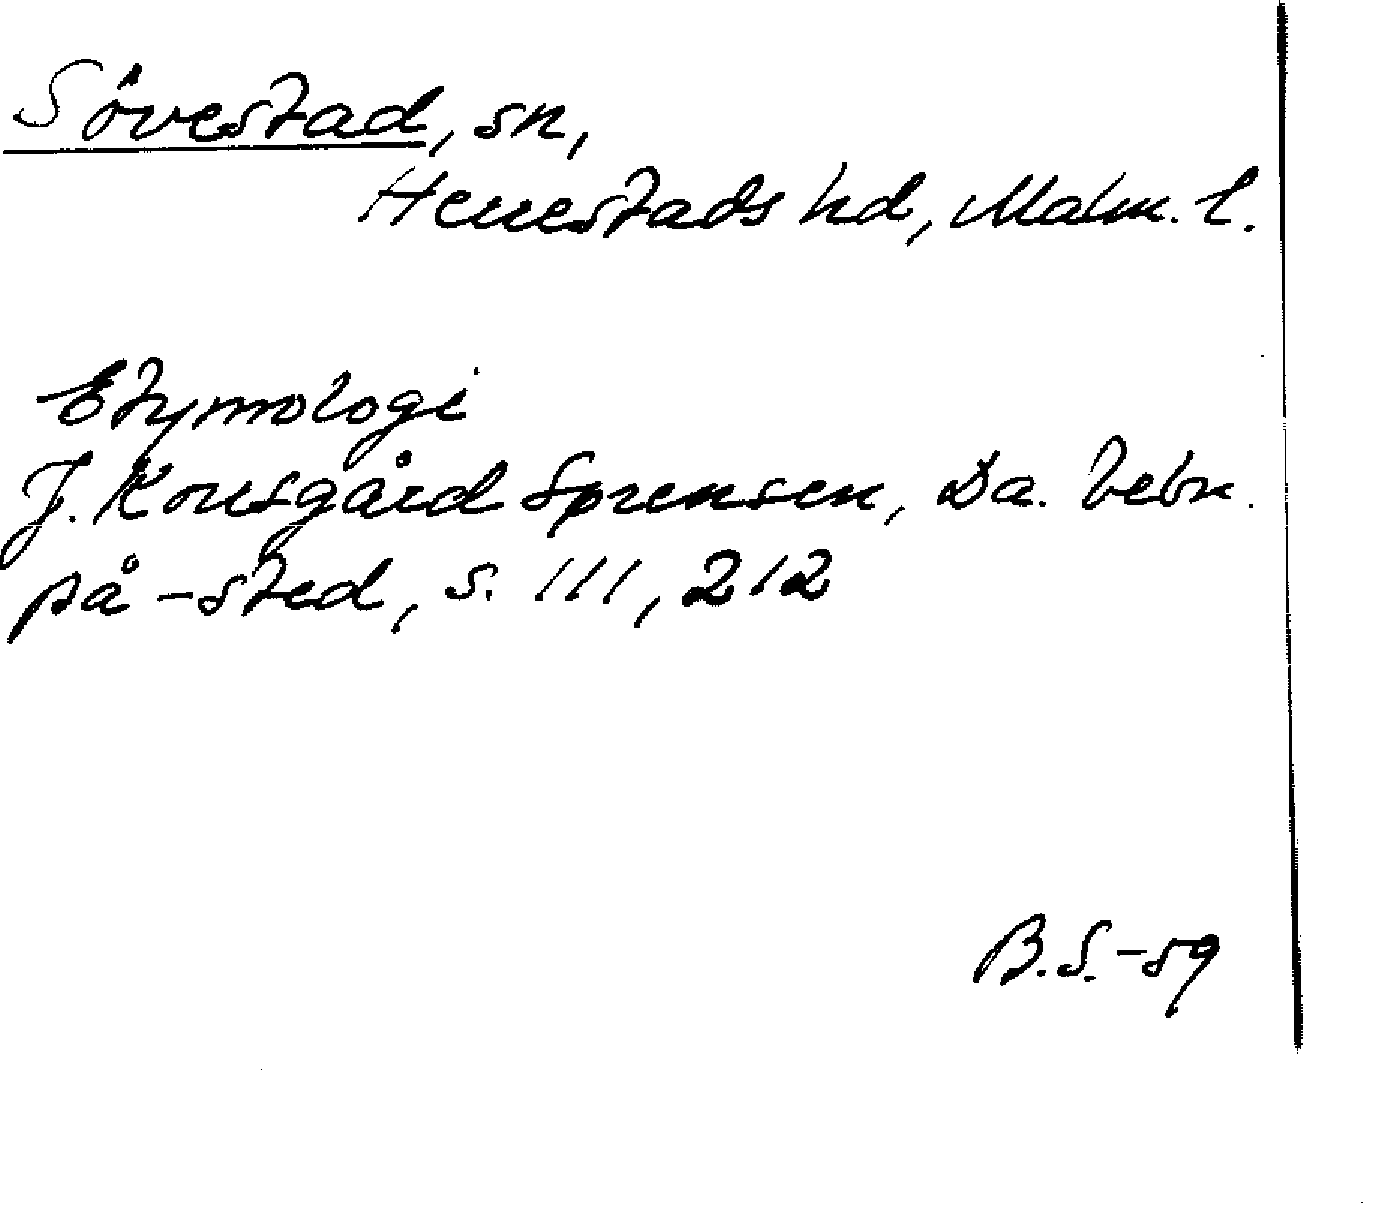 Sövestad, sn,
Herrestads hd, Malm. l.
Etymologi
J. Kousgård Sørensen, Da. bebn.
på -sted, s. 111, 212
B.S.-59